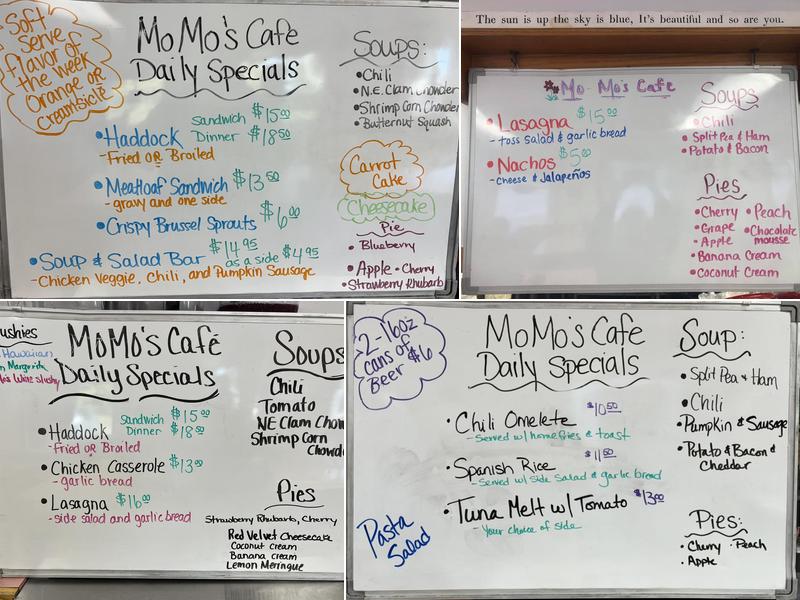 Soft
Serve
flavor of
the week
Orange or
Creamsicle
MoMo's Cafe
Daily Specials
Sandwich $15.00
• Haddock Dinner $18.50
- Fried or Broiled
• Meatloaf Sandwich $13.50
- gravy and one side
• Crispy Brussel Sprouts $6.00
• Soup & Salad Bar $14.95 as a side $4.95
- Chicken Veggie, Chili, and Pumpkin Sausage
Soups:
• Chili
• N.E. Clam Chowder
• Shrimp Corn Chowder
• Butternut Squash
Carrot
Cake
Cheesecake
Pie
• Blueberry
• Apple • Cherry
• Strawberry Rhubarb
The sun is up the sky is blue, It's beautiful and so are you.
Mo-Mo's Cafe
• Lasagna $15.00
- toss salad & garlic bread
• Nachos $5.00
- cheese & Jalapeños
Soups
• Chili
• Split Pea & Ham
• Potato & Bacon
Pies
• Cherry • Peach
• Grape • Chocolate
• Apple mousse
• Banana Cream
• Coconut Cream
ushies
Hawaiian
Margarita
Wine Slushy
MoMo's Café
Daily Specials
Sandwich $15.00
• Haddock Dinner $18.50
- Fried or Broiled
• Chicken Casserole $13.00
- garlic bread
• Lasagna $16.00
- side salad and garlic bread
Soups
Chili
Tomato
NE Clam Chow
Shrimp Corn
Chowd
Pies
Strawberry Rhubarb, Cherry
Red Velvet Cheesecake
Coconut Cream
Banana Cream
Lemon Meringue
2-16oz
cans of
Beer $6
MoMo's Cafe
Daily Specials
• Chili Omelete $10.50
- Served w/ homefries & toast
• Spanish Rice $11.50
- Served w/ side Salad & garlic bread
• Tuna Melt w/ Tomato $13.00
- Your choice of side
Pasta
Salad
Soup:
• Split Pea & Ham
• Chili
• Pumpkin & Sausage
• Potato & Bacon &
Cheddar
Pies:
• Cherry • Peach
• Apple